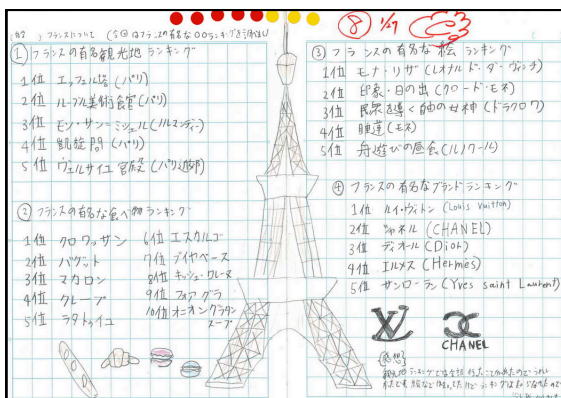 フランスについて
⑧ 1/27
① フランスの有名観光地ランキング
1位 エッフェル塔(パリ)
2位 ルーブル美術館(パリ)
3位 モン・サン=ミシェル(ノルマンディー)
4位 凱旋門(パリ)
5位 ヴェルサイユ宮殿(パリ近郊)
② フランスの有名な食べ物ランキング
1位 クロワッサン
2位 バゲット
3位 マカロン
4位 クレープ
5位 ラタトゥイユ
6位 エスカルゴ
7位 ブイヤベース
8位 キッシュ・ロレーヌ
9位 フォアグラ
10位 オニオングラタン
スープ
③ フランスの有名な絵ランキング
1位 モナ・リザ(レオナルド・ダ・ヴィンチ)
2位 印象・日の出(クロード・モネ)
3位 民衆を導く自由の女神(ドラクロワ)
4位 睡蓮(モネ)
5位 舟遊びの昼食(ルノワール)
④ フランスの有名なブランドランキング
1位 ルイ・ヴィトン(Louis Vuitton)
2位 シャネル(CHANEL)
3位 ディオール(Dior)
4位 エルメス(Hermes)
5位 サンローラン(Yves saint Laurent)
LV
CHANEL
{感想}